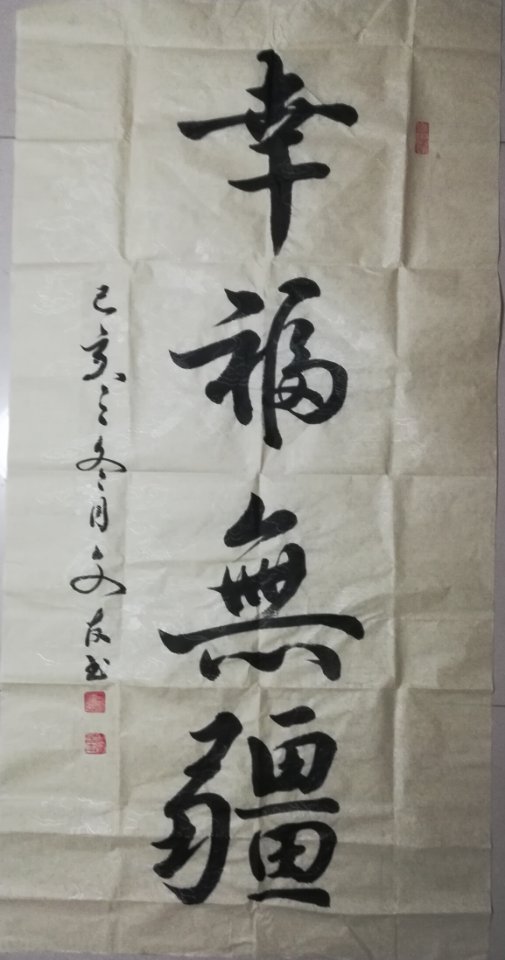 幸福無疆
己亥之冬月文友书